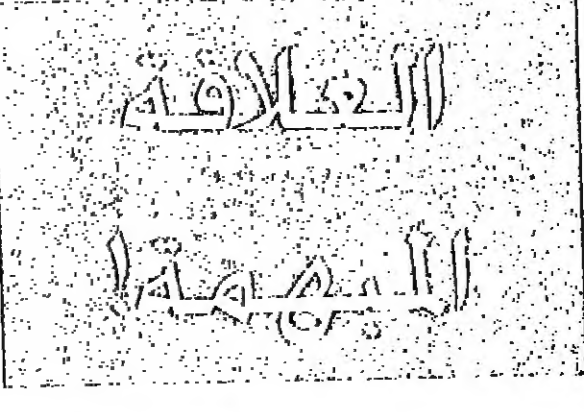 العلاقة
المبهمة !